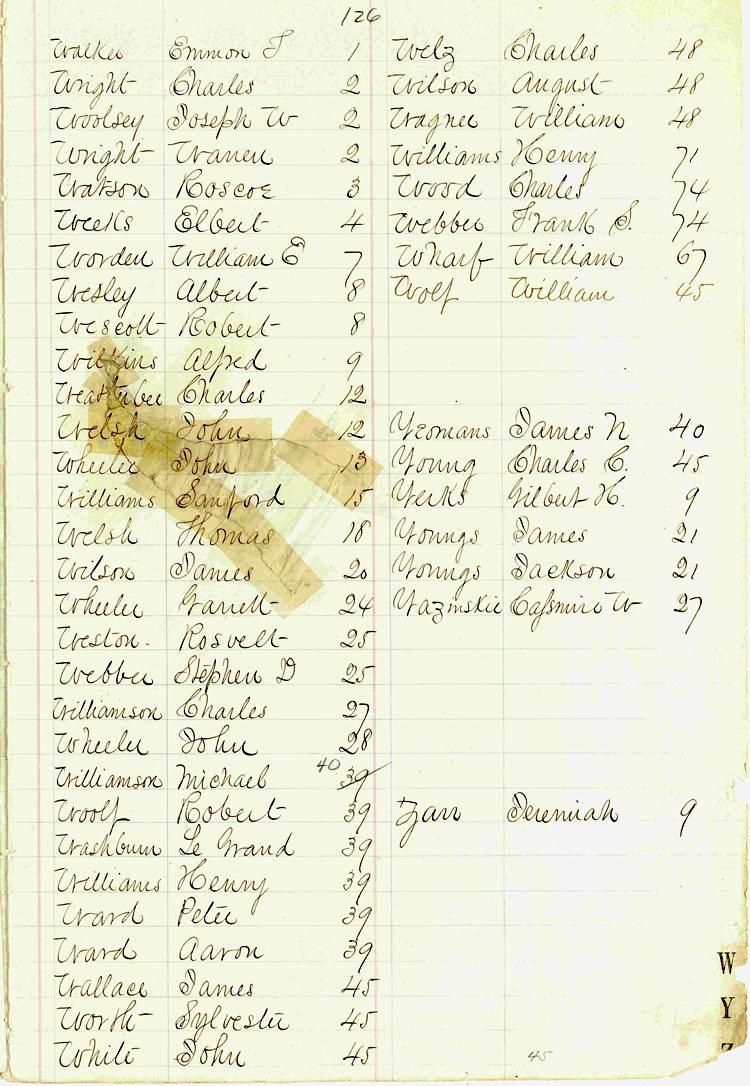 126
Walker Emmon F 1
Wright Charles 2
Woolsey Joseph W 2
Wright Warren 2
Watson Roscoe 3
Weeks Elbert 4
Worden William E 7
Wesley Albert 8
Wescott Robert 8
Wilkins Alfred 9
Charles 12
Welsh John 12
Wheeler John 13
Williams Sanford 15
Welsh Thomas 18
Wilson James 20
Wheeler Garrett 24
Weston Rosvelt 25
Webber Stephen D 25
Williamson Charles 27
Wheeler John 28
Williamson Michael 40 39
Woolf Robert 39
Washburn Le Grand 39
Williams Henry 39
Ward Peter 39
Ward Aaron 39
Wallace James 45
Worth Sylvester 45
White John 45
Welz Charles 48
Wilson August 48
Wagner William 48
Williams Henry 71
Wood Charles 74
Webber Frank S. 74
Wharf William 67
Wolf William 45
Yeomans James N 40
Young Charles C. 45
Yerks Gilbert H. 9
Youngs James 21
Youngs Jackson 21
Yazinskie Cassmire W 27
Zarr Jeremiah 9
45
W
Y